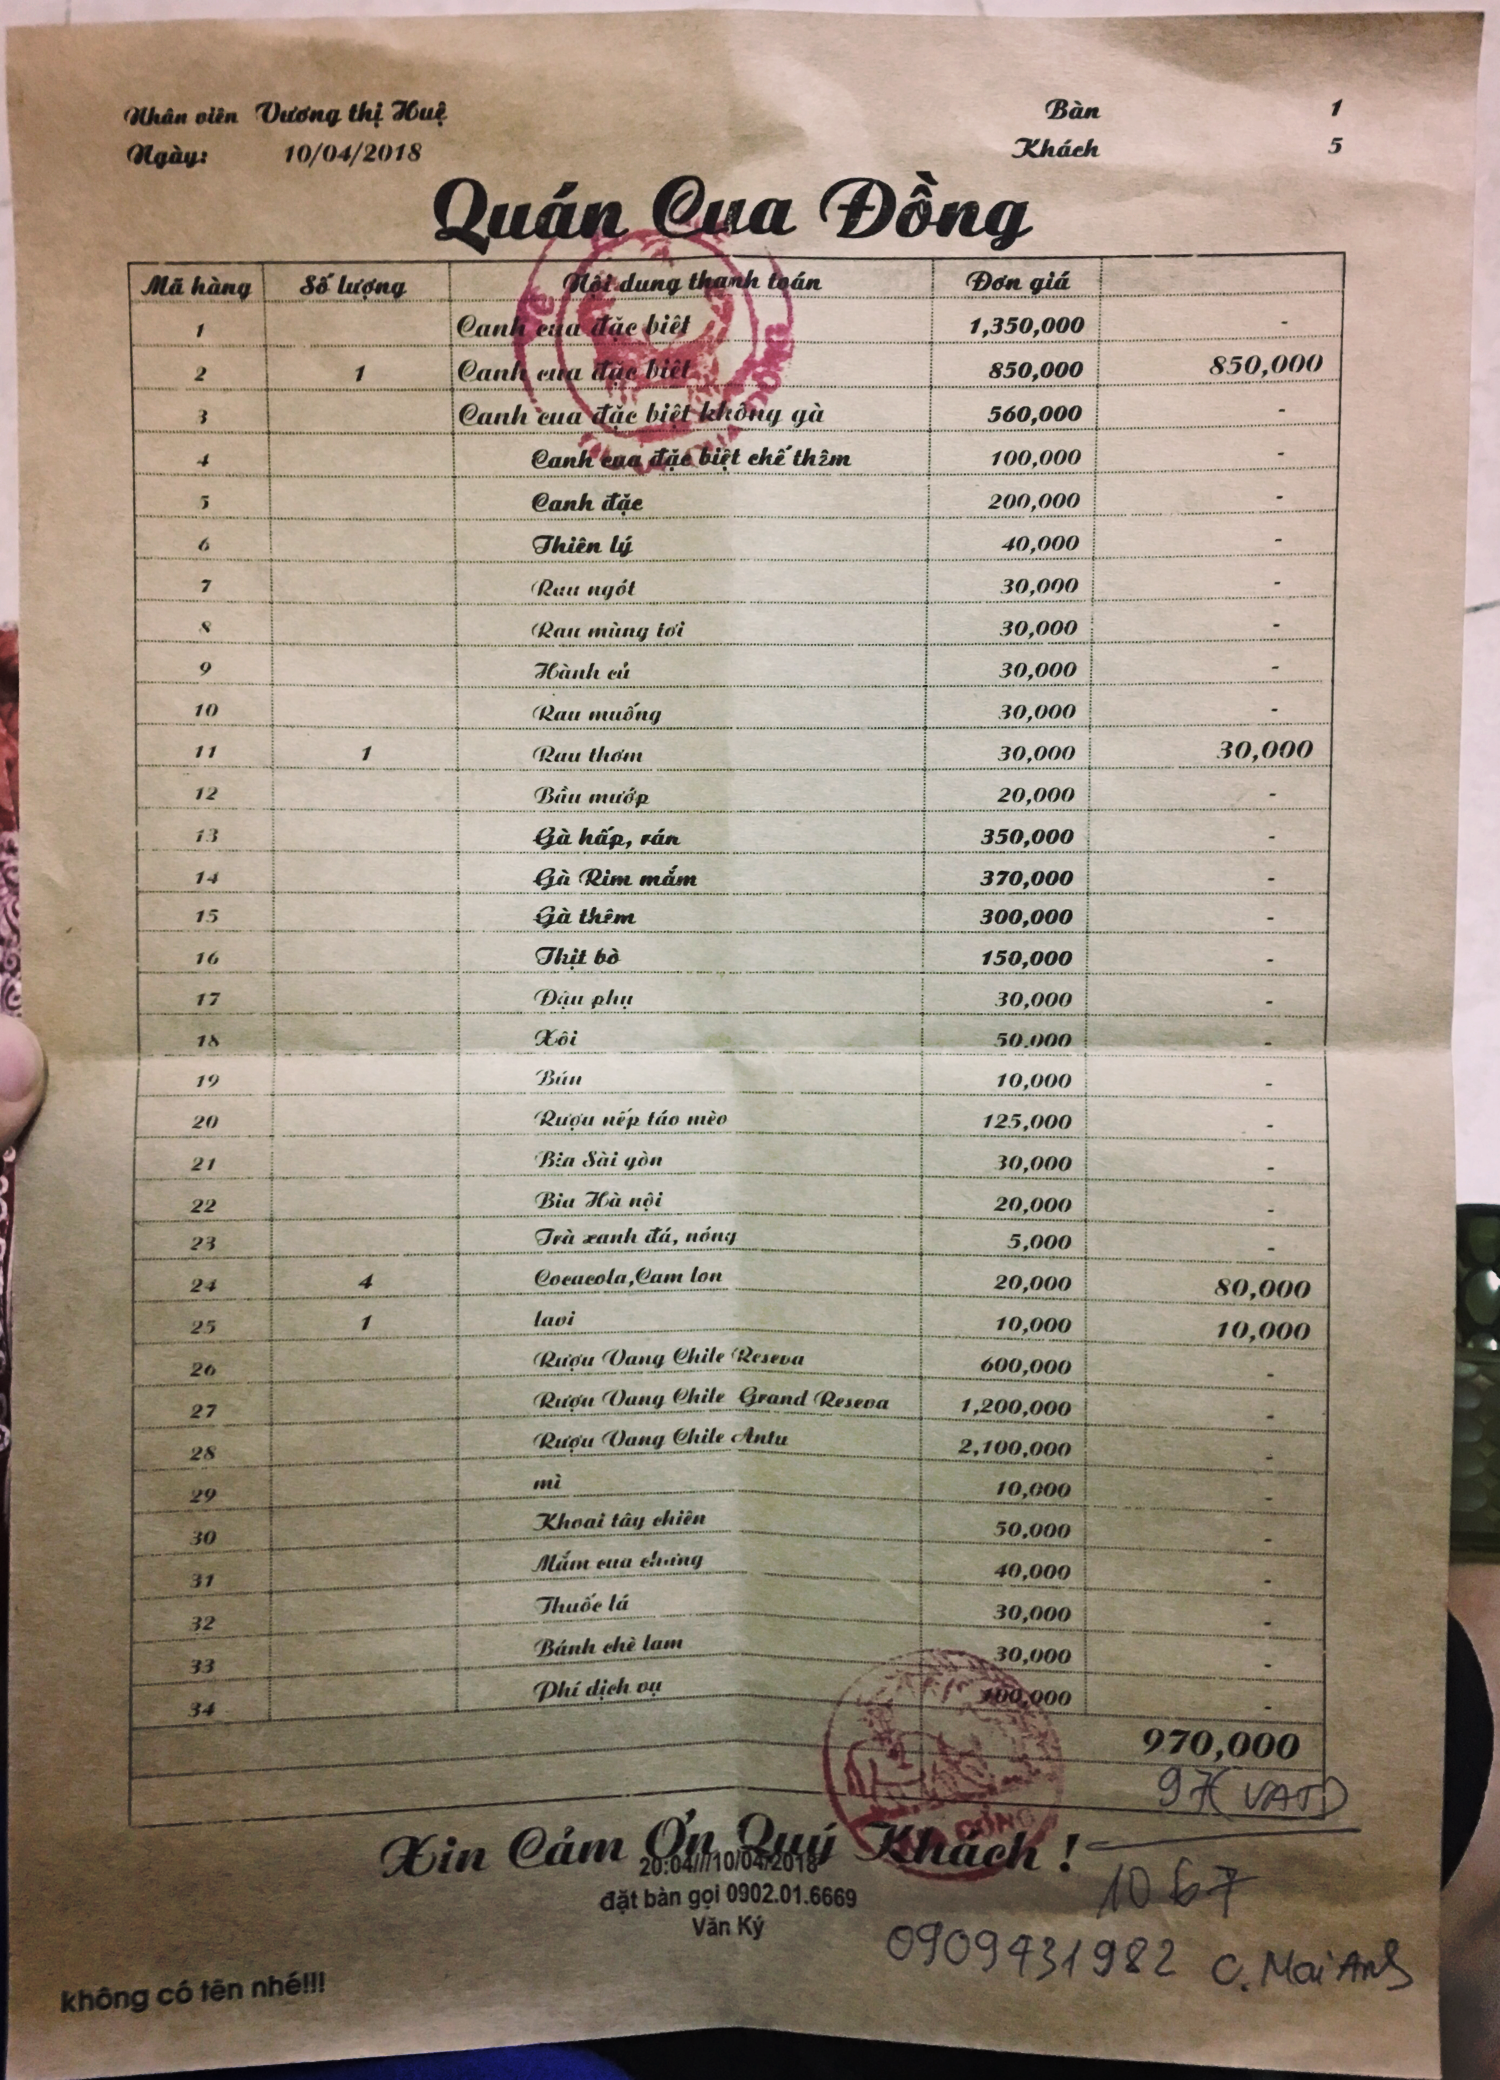 Nhân viên Vương thị Huệ Bàn 1
Ngày: 10/04/2018 Khách 5
Quán Cua Đồng
Mã hàng Số lượng Nội dung thanh toán Đơn giá
1 Canh cua đặc biệt 1,350,000 -
2 1 Canh cua đặc biệt 850,000 850,000
3 Canh cua đặc biệt không gà 560,000 -
4 Canh cua đặc biệt chế thêm 100,000 -
5 Canh đặc 200,000 -
6 Thiên lý 40,000 -
7 Rau ngót 30,000 -
8 Rau mùng tơi 30,000 -
9 Hành củ 30,000 -
10 Rau muống 30,000 -
11 1 Rau thơm 30,000 30,000
12 Bầu mướp 20,000 -
13 Gà hấp, rán 350,000 -
14 Gà Rim mắm 370,000 -
15 Gà thêm 300,000 -
16 Thịt bò 150,000 -
17 Đậu phụ 30,000 -
18 Xôi 50.000 -
19 Bún 10,000 -
20 Rượu nếp táo mèo 125,000 -
21 Bia Sài gòn 30,000 -
22 Bia Hà nội 20,000 -
23 Trà xanh đá, nóng 5,000 -
24 4 Cocacola,Cam lon 20,000 80,000
25 1 lavi 10,000 10,000
26 Rượu Vang Chile Reseva 600,000 -
27 Rượu Vang Chile Grand Reseva 1,200,000 -
28 Rượu Vang Chile Antu 2,100,000 -
29 mì 10,000 -
30 Khoai tây chiên 50,000 -
31 Mắm cua chưng 40,000 -
32 Thuốc lá 30,000 -
33 Bánh chè lam 30,000 -
34 Phí dịch vụ 100,000 -
970,000
97 (VAT)
Xin Cảm Ơn Quý Khách !
20:04///10/04/2018
1067
đặt bàn gọi 0902.01.6669
Văn Ký
0909431982 C. Mai Anh
không có tên nhé!!!